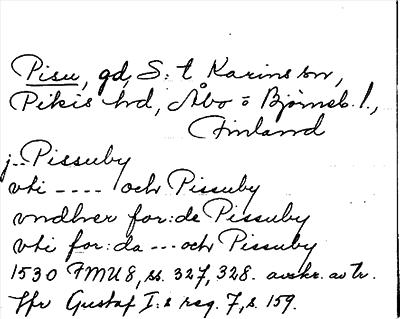 Pisu, gd, S:t Karins sn,
Pikis hd, Åbo o Björneb. l.,
Finland
j... Pissuby
vti ---- och Pissuby
vndher for:de Pissuby
vti for:da --- och Pissuby
1530 FMU 8, ss. 327, 328. avskr. av tr.
Jfr Gustaf I:s reg. 7, s. 159.